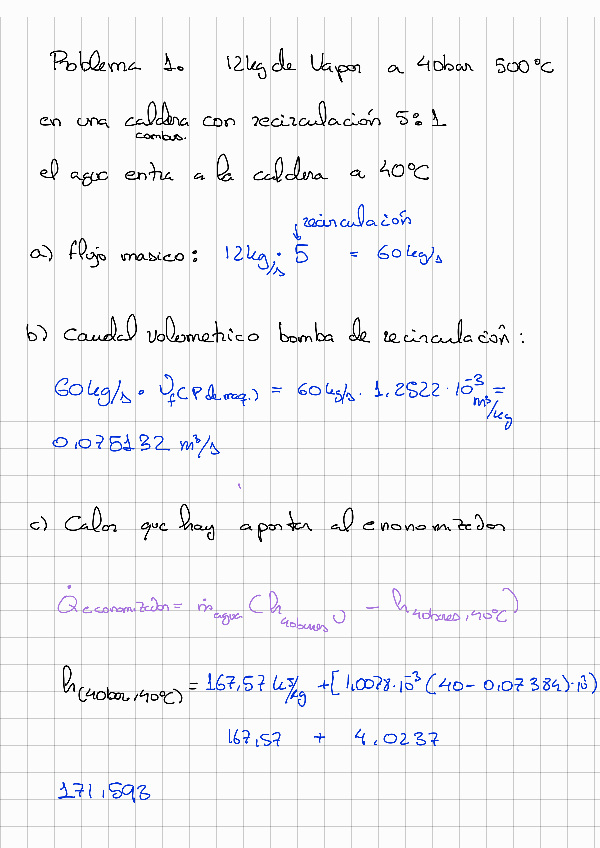 Problema 1. 12kg de Vapor a 40bar 500°C
en una caldera con recirculación 5:1
combus.
el agua entra a la caldera a 40°C
recirculación
a) flujo masico: 12kg/s · 5 = 60kg/s
b) Caudal volumetrico bomba de recirculación:
60kg/s · υf(P de maq.) = 60kg/s · 1.2522·10⁻³ m³/kg =
0,075132 m³/s
c) Calor que hay aportar al enonomizador
Q̇economizador = ṁagua (h40bares υ - h40bares,40°C)
h(40bar,40°C) = 167,57 kJ/kg + [1,0078·10⁻³ (40 - 0,07384)·10²)
167,57 + 4.0237
171,593